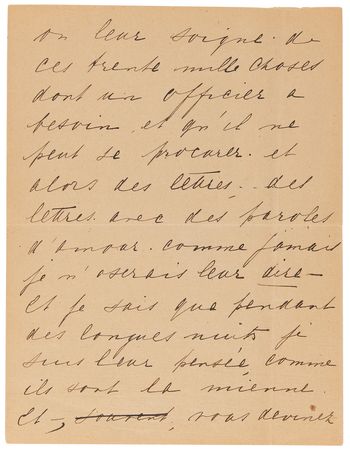 on leur soigne. de
ces trente mille choses
dont un officier a
besoin, et qu'il ne
peut se procurer. et
alors des lettres. des
lettres. avec des paroles
d'amour. comme jamais
je n'oserais leur dire –
Et je sais que pendant
des longues nuits je
suis leur pensée comme
ils sont la mienne.
Et –, souvent, vous devinez